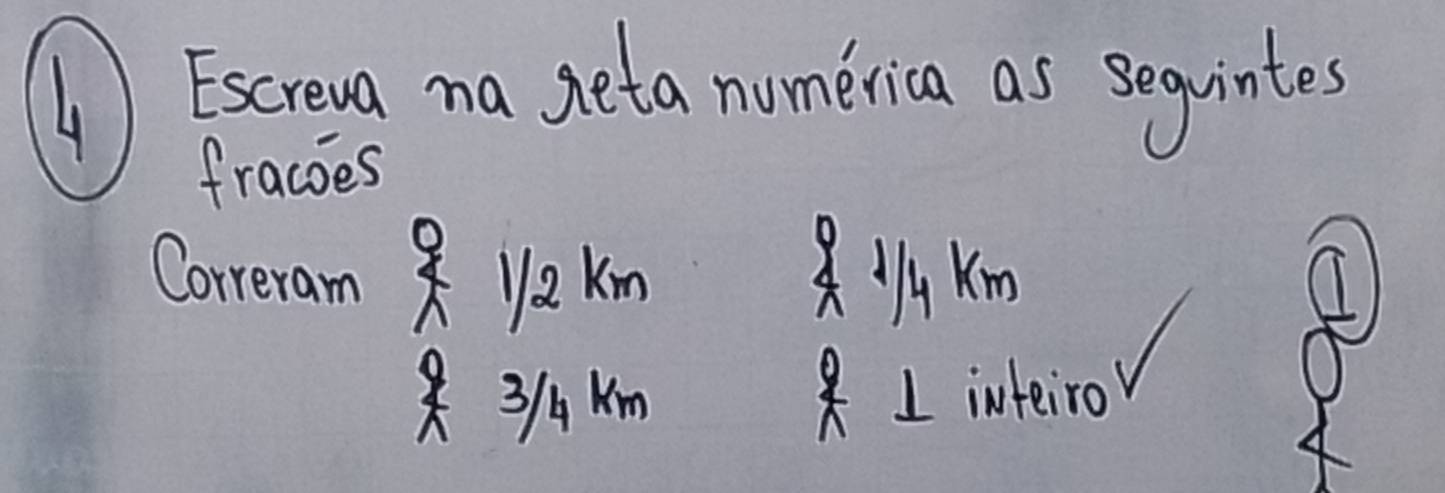 4 Escreva na reta numérica as seguintes
fracões
Correram 1/2 Km 1/4 Km
3/4 Km 1 inteiro ✓
1